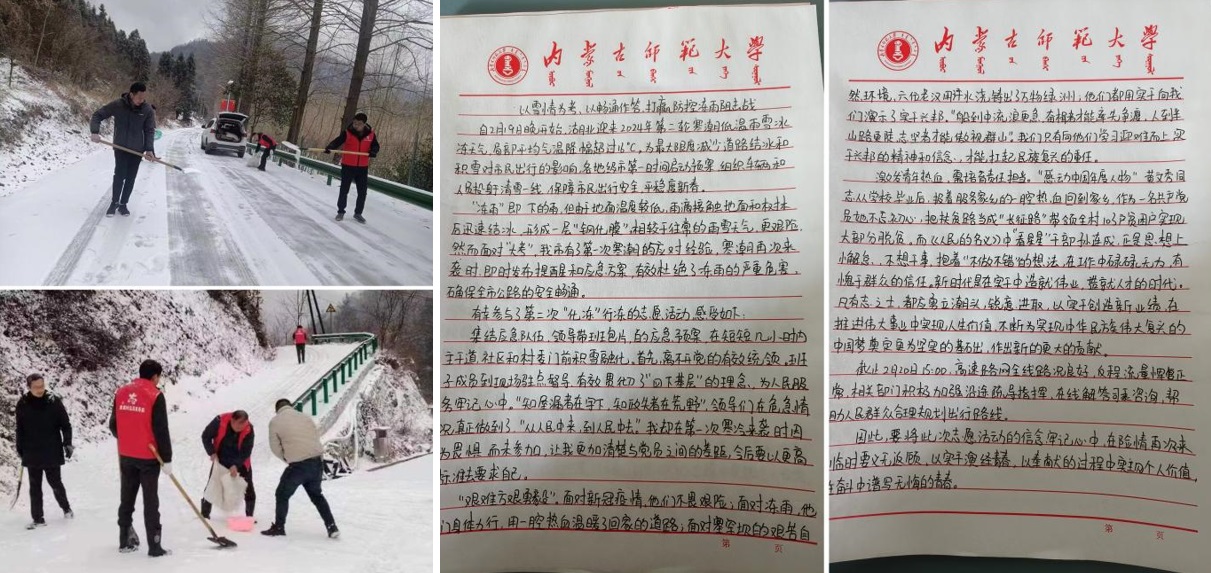 内蒙古师范大学
以雪情为卷、以畅通作答,打赢防控冻雨阻击战
自2月19日晚开始,湖北迎来2024年第二轮寒潮低温雨雪冰
冻天气,局部平均气温降幅超过10℃,为最大限度减少道路结冰和
积雪对市民出行的影响,各地级市第一时间启动预案,组织车辆和
人员投身清雪一线,保障市民出行安全,平稳度新春。
"冻雨"即下的雨,但由于地面温度较低,雨滴接触地面和树林
后迅速结冰,形成一层"钢化膜"相较于往常的雨雪天气,更艰险
然而面对"大考",我市有第一次寒潮的应对经验,寒潮再次来
袭时,即时发布提醒和应急方案,有效杜绝了冻雨的严重危害,
确保全市公路的安全畅通。
有幸参与了第二次"化冻"行冻的志愿活动,感启如下:
集结应急队伍,领导带班包片,的应急预案,在短短几小时内
主干道,社区和村委门前积雪融化。首先,离不开党的有效统领,班子
成员到现场驻点督导,有效贯彻了"四下基层"的理念,为人民服
务牢记心中。"知屋漏者在宇下,知政失者在荒野",领导们在危急情
况,真正做到了"从人民中来,到人民中去。"我却在第一次寒冷来袭时因
为畏惧,而未参加,让我更加清楚与党员之间的差距,今后要以更高
标准去要求自己。
"艰难方显勇毅",面对新冠疫情,他们不畏艰险;面对冻雨,他
们身体力行,用一腔热血温暖了回家的道路;面对
第 页
内蒙古师范大学
然环境,六代老汉用汗水浇铸出了万物绿洲,他们都用实干向我
们演示了实干兴邦。"船到中流浪更急,有担者才能率先争渡,人到半
山路更陡,志坚者才能傲视群山"。我们只有向他们学习迎难而上,实
干兴邦的精神和信念,才能,扛起民族复兴的重任。
激发青年热血,需培育责任担当。"感动中国年度人物"黄文秀同
志从学校毕业后,抱着服务家乡的一腔热血回到家乡,作为一名共产党
员她不忘初心,把扶贫路当成"长征路"带领全村103户贫困户实现
大部分脱贫。而《人民的名义》中"看星星"干部孙连成,正是思想上
小懈怠,不想干事,抱着"不做不错"的想法,在工作中碌碌无为,有
愧于群众的信任。新时代是在实干中造就伟业,攒就人才的时代。
凡有志之士,都应勇立潮头,锐意进取,以实干创造新业绩,在
推进伟大事业中实现人生价值,不断为实现中华民族伟大复兴的
中国梦奠定更为坚实的基石出,作出新的更大的贡献。
截止2月20日15:00,高速路网全线路况良好,返程流量慢慢正
常,相关部门积极加强沿途疏导指挥,在线解答司乘咨询,帮
助人民群众合理规划出行路线。
因此,要将此次志愿活动的信念牢记心中,在险情再次来
临时要义无返顾,以实干演绎青春,以奉献的过程中实现个人价值,
在奋斗中谱写无悔的青春。
第 页